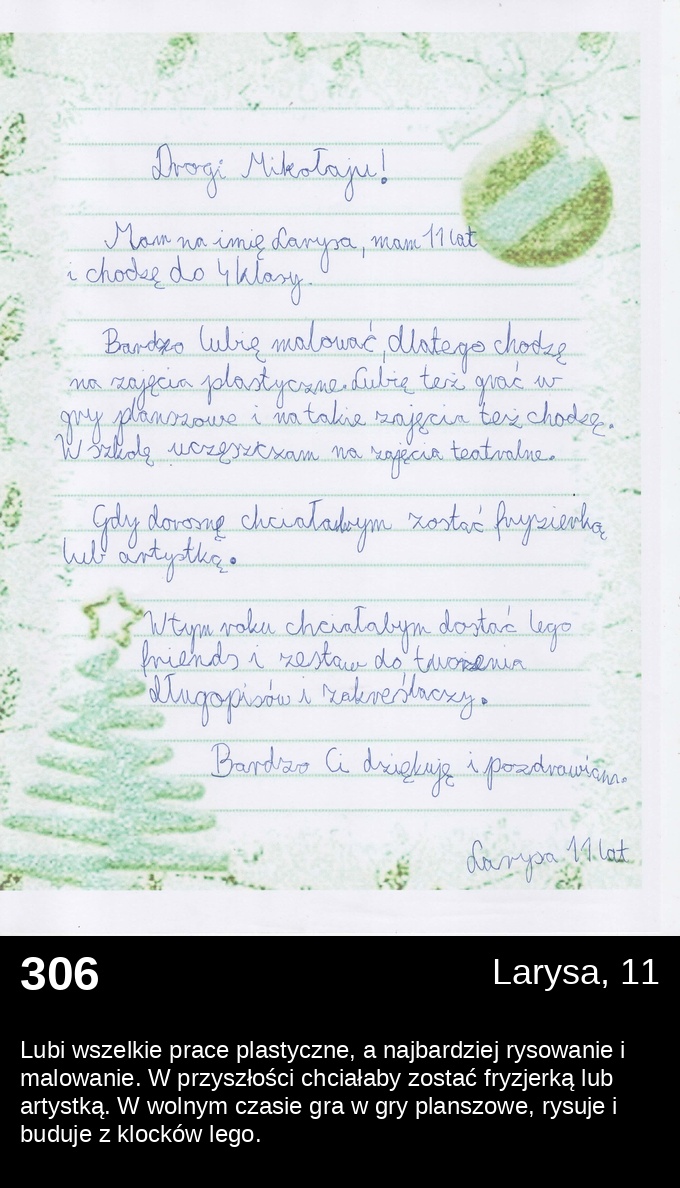 Drogi Mikołaju!
Mam na imię Larysa, mam 11 lat
i chodzę do 4 klasy.
Bardzo lubię malować, dlatego chodzę
na zajęcia plastyczne. Lubię też grać w
gry planszowe i na takie zajęcia też chodzę.
W szkolę uczęszczam na zajęcia teatralne.
Gdy dorosnę chciałabym zostać fryzierką
lub artystką.
W tym roku chciałabym dostać lego
friends i zestaw do tworzenia
długopisów i zakreślaczy.
Bardzo Ci dziękuję i pozdrawiam.
Larysa 11 lat
306
Larysa, 11
Lubi wszelkie prace plastyczne, a najbardziej rysowanie i
malowanie. W przyszłości chciałaby zostać fryzjerką lub
artystką. W wolnym czasie gra w gry planszowe, rysuje i
buduje z klocków lego.